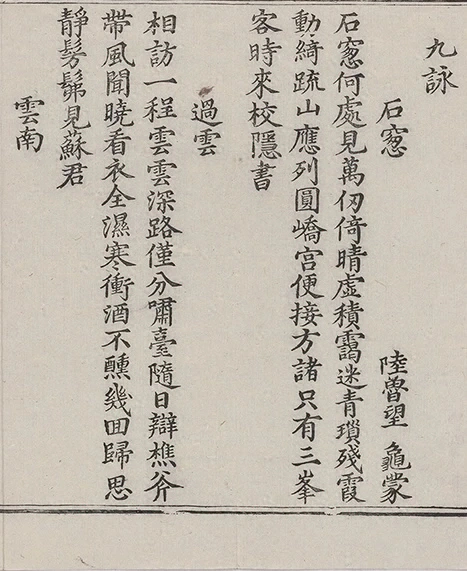 九詠
石窻 陸魯望 龜蒙
石窻何處見萬仞倚晴虛積靄迷青瑣殘霞
動綺疏山應列圓嶠宫便接方諸只有三峯
客時來校隱書
過雲
相訪一程雲雲深路僅分嘯臺隨日辯樵斧
帶風聞曉看衣全濕寒衝酒不醺幾囬歸思
靜髣髴見蘇君
雲南